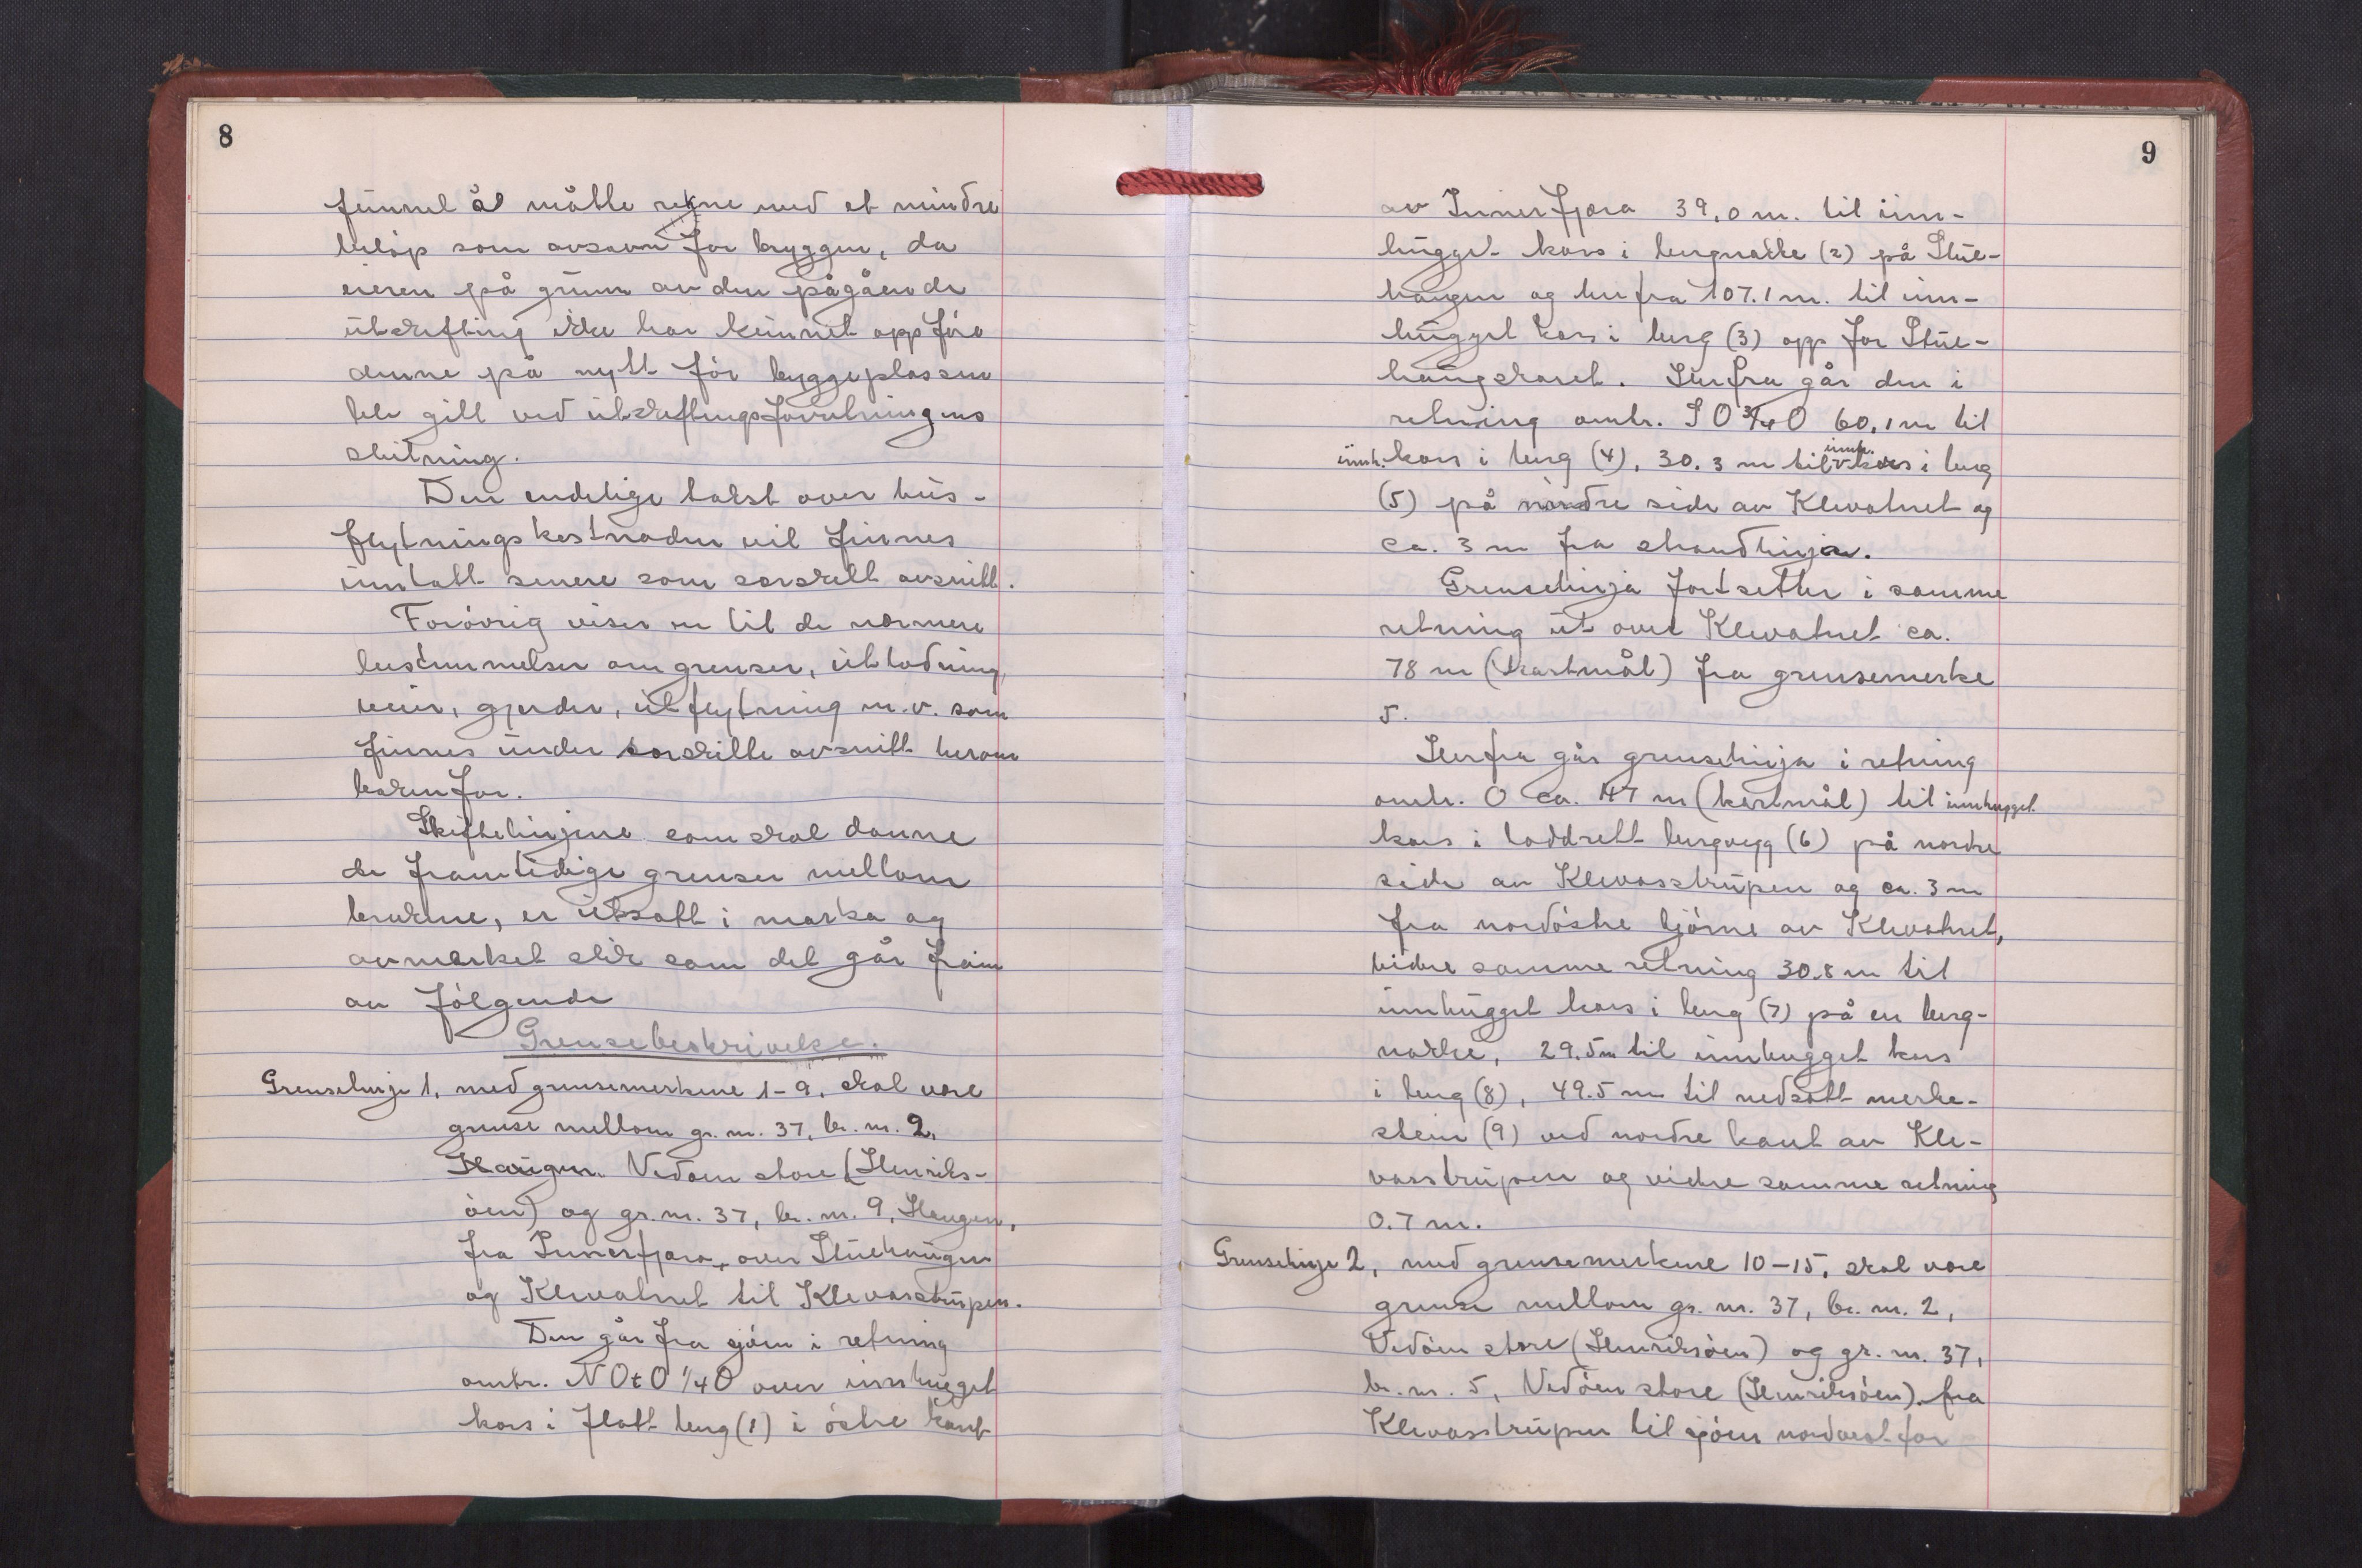 8
funnet å måtte rekne med et mindre
beløp som avsavn for bryggen, da
eieren på grunn av den pågående
utskifting ikke har kunnet oppføre
denne på nytt før byggeplassen
ble gitt ved utskiftingsforretningens
slutning.
Den endelige takst over hus-
flytningskostnaden vil finnes
inntatt senere som særskilt avsnitt.
Forøvrig viser en til de nærmere
bestemmelser om grenser, utlodning,
veier, gjerder, utflytning m.v. som
finnes under særskilte avsnitt herom
bakenfor.
Skiftelinjene som skal danne
de framtidige grenser mellom
brukene, er utsatt i marka og
avmerket slik som det går fram
av følgende
Grensebeskrivelse.
Grenselinje 1, med grensemerkene 1-9, skal være
grense mellom gr. nr. 37, br. nr. 2,
Haugen Vedøen store (Henriks-
øen) og gr. nr. 37, br. nr. 9, Haugen,
fra Innerfjæra, over Stuehaugen
og Klevatnet til Klevasstrupen.
Den går fra sjøen i retning
omtr. NOtO 1/4 O over innhugget
kors i flatt berg (1) i østre kant
9
av Innerfjæra 39,0 m. til inn-
hugget kors i bergnakke (2) på Stue-
haugen og herfra 107.1 m. til inn-
hugget kors i berg (3) opp for Stue-
haugskaret. Herfra går den i
retning omtr. SO 3/4 O 60,1 m til
innh. kors i berg (4), 30.3 m til innh. kors i berg
(5) på nordre side av Klevatnet og
ca. 3 m fra strandlinjen.
Grenselinja fortsetter i samme
retning ut over Klevatnet ca.
78 m (kartmål) fra grensemerke
5.
Herfra går grenselinja i retning
omtr. O ca. 147 m (kartmål) til innhugget
kors i loddrett bergvegg (6) på nordre
side av Klevasstrupen og ca. 3 m
fra nordøstre hjørne av Klevatnet,
vidre samme retning 30.8 m til
innhugget kors i berg (7) på en berg-
nakke, 29.5 m til innhugget kors
i berg (8), 49.5 m til nedsatt merke-
stein (9) ved nordre kant av Kle-
vasstrupen og vidre samme retning
0.7 m.
Grenselinje 2, med grensemerkene 10-15, skal være
grense mellom gr. nr. 37, br. nr. 2,
Vedøen store (Henriksøen) og gr. nr. 37,
br. nr. 5, Vedøen store (Henriksøen), fra
Klevasstrupen til sjøen nordvest for